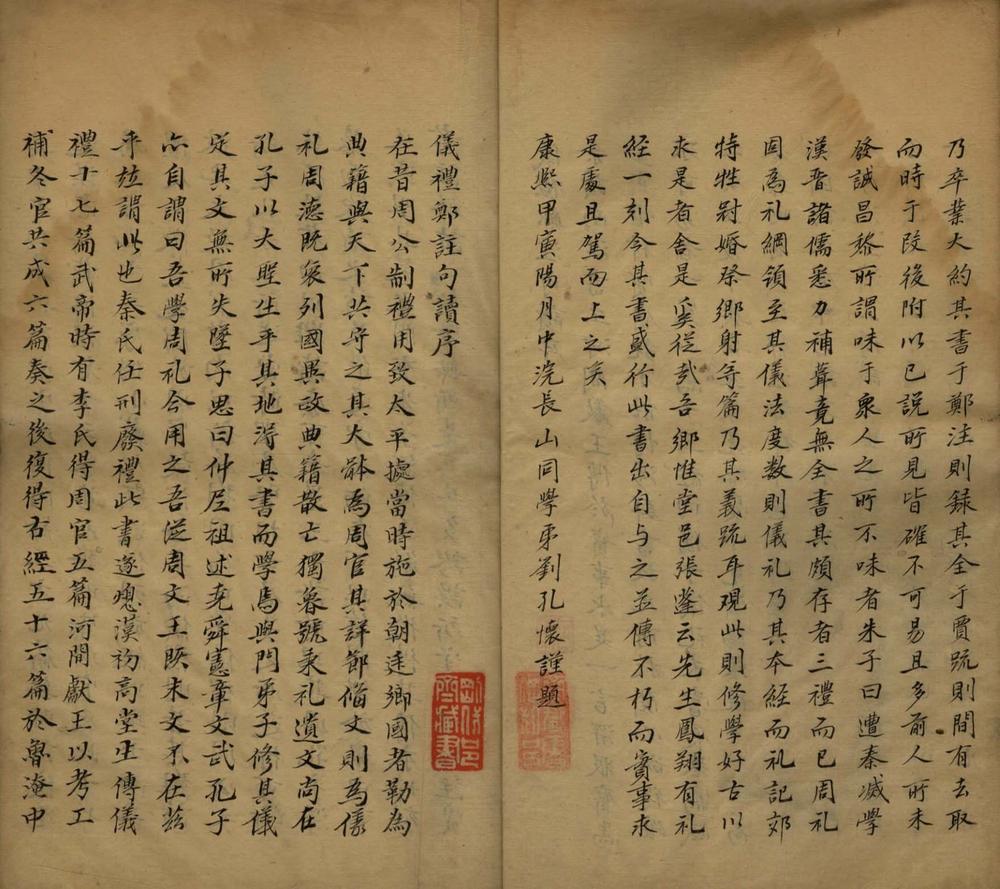 乃卒業大約其書于鄭注則録其全于賈疏則間有去取
而時于段後附以已說所見皆確不可易且多前人所未
發誠昌黎所謂味于衆人之所不味者朱子曰遭秦滅學
漢晋諸儒悉力補葺竟無全書其頗存者三禮而已周礼
固爲礼綱領至其儀法度数則儀礼乃其本經而礼記郊
特牲冠婚祭鄉射等篇乃其義疏耳观此則修學好古以
求是者舍是奚從哉吾鄉惟堂邑張蓬云先生鳳翔有礼
經一刻今其書盛行此書出自与之並傳不朽而實事求
是處且駕而上之矣
康熙甲寅陽月中浣長山同學弟劉孔懷謹題
儀禮鄭註句讀序
在昔周公制禮用致太平據當時施於朝廷鄉國者勒為
典籍與天下共守之其大體為周官其詳節俻文則為儀
礼周德既衰列國異政典籍散亡獨魯號秉礼遺文尚在
孔子以大聖生乎其地得其書而學焉與門弟子修其儀
定其文無所失墜子思曰仲尼祖述尭舜憲章文武孔子
亦自謂曰吾學周礼今用之吾從周文王旣末文不在茲
乎玆謂此也秦氏任刑廢禮此書遂熄漢初高堂生傳儀
禮十七篇武帝時有李氏得周官五篇河間獻王以考工
補冬官共成六篇奏之後復得古經五十六篇於魯淹中
齊藏書